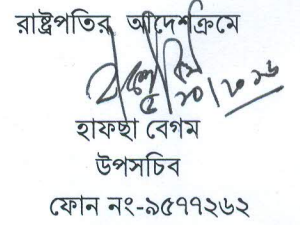 রাষ্ট্রপতির আদেশক্রমে
হাফছা বেগম
উপসচিব
ফোন নং-৯৫৭৭২৬২